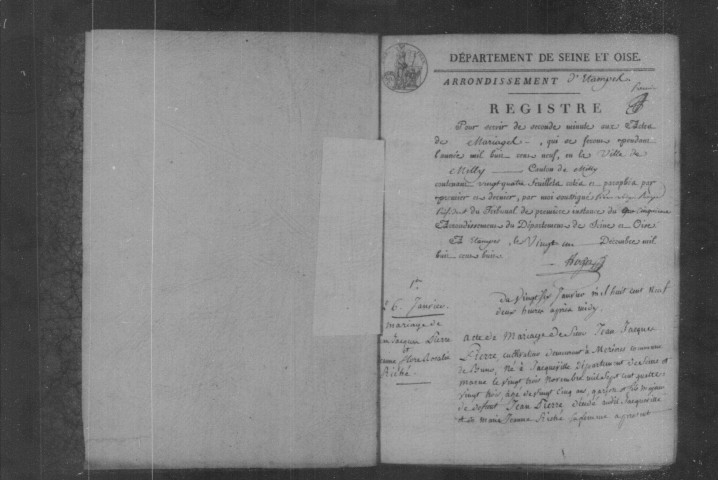 DÉPARTEMENT DE SEINE ET OISE.
ARRONDISSEMENT D'Etampes
Premier
REGISTRE
Pour servir de seconde minute aux Actes
de Mariages, qui se feront pendant
l'année mil huit cent neuf, en la Ville de
Milly Canton de Milly
contenant vingt quatre feuillets cotés et paraphés par
premier et dernier, par moi soussigné
Président du Tribunal de première instance du cinquième
Arrondissement du Département de Seine et Oise
A Etampes le Vingt un Décembre mil
huit cent huit
1er
26 Janvier
mariage de
Jean Jacques Pierre
et
Flore Rosalie
Riché
Du Vingt Six Janvier mil huit cent Neuf
deux heures après midy
acte de Mariage de Sieur Jean Jacques
Pierre, cultivateur demeurant à commune
de né à Jacqueville Département de Seine et
marne le vingt trois Novembre mil Sept cent quatre
vingt trois, âgé de vingt cinq ans, garçon et fils majeur
de defunt Jean Pierre décédé audit Jacqueville
et de marie Jeanne Riché sa femme